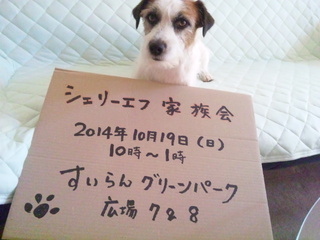 シェリーエフ 家族会
2014年10月19日(日)
10時～1時
すいらん グリーンパーク
広場 7&8